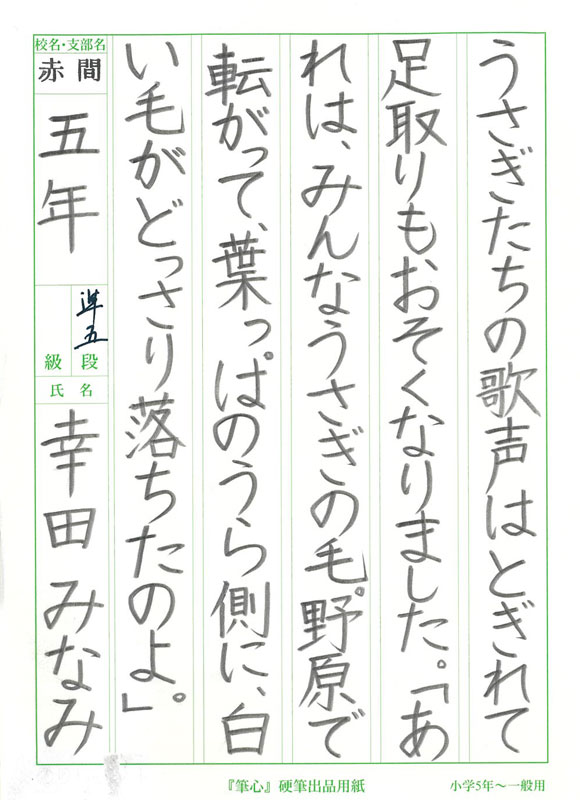 うさぎたちの歌声はとぎれて
足取りもおそくなりました。「あ
れは、みんなうさぎの毛。野原で
転がって、葉っぱのうら側に、白
い毛がどっさり落ちたのよ。」
校名・支部名
赤間
五年
準五
段
級
氏名
幸田みなみ
『筆心』硬筆出品用紙
小学5年〜一般用